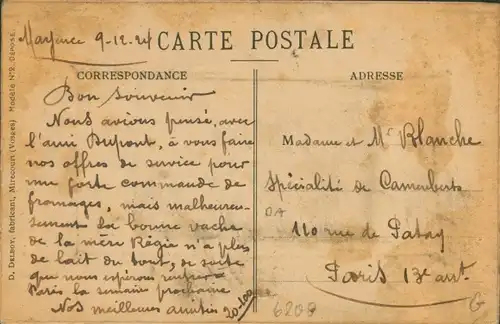 Mayence 9-12-24
CARTE POSTALE
CORRESPONDANCE
ADRESSE
Bon Souvenir
Nous avions pensé, avec
l'ami Dupont, à vous faire
nos offres de service pour
une forte commande de
fromages, mais malheureu-
sement la bonne vache
de la mère Régie n'a plus
de lait du tout, de sorte
que nous espérons rentrer
Paris la semaine prochaine
Nos meilleures amitiés
Madame et Mr Blanche
Spécialité de Camemberts
110 rue de Patay
Paris 13e arrt.
DA
20-100
6208
D. Delboy, fabricant, Mirecourt (Vosges) Modèle No 2. Déposé.